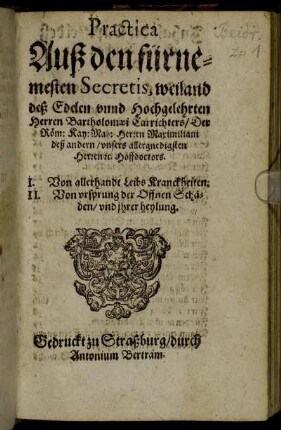 Practica
Auß den fürne-
mesten Secretis, weiland
deß Edelen vnnd Hochgelehrten
Herren Bartholomæi Carrichters/ Der
Röm: Kay: May: Herren Maximiliani
deß andern/ vnsers allergnedigsten
Herren ꝛc Hoffdoctors.
I. Von allerhande Leibs Kranckheiten.
II. Von vrsprung der Offnen Schä-
den/ vnd jhrer heylung.
Gedruckt zu Straßburg/ durch
Antonium Bertram.